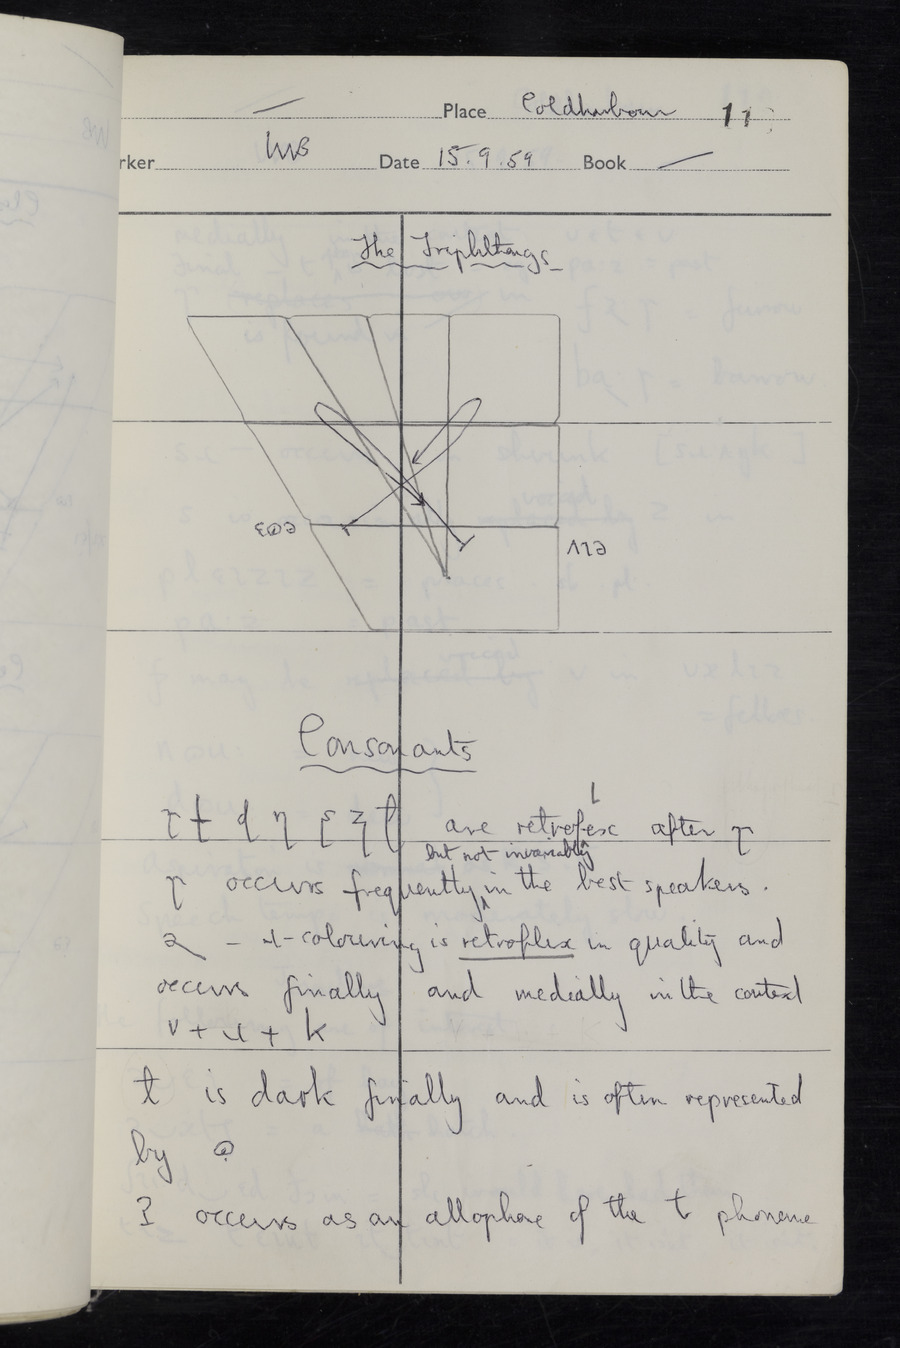 Place Coldharbour 11
rker WB Date 15.9.59 Book
The Triphthongs
eɪʌ
Consonants
ɽ ʈ ɖ ɳ ʂ ʐ ɭ are retroflex after ɽ
but not invariably
ɽ occurs frequently in the best speakers.
ɹ-colouring is retroflex in quality and
occurs finally and medially in the context
v + ɹ + k
ɫ is dark finally and is often represented
by
ʔ occurs as an allophone of the t phoneme